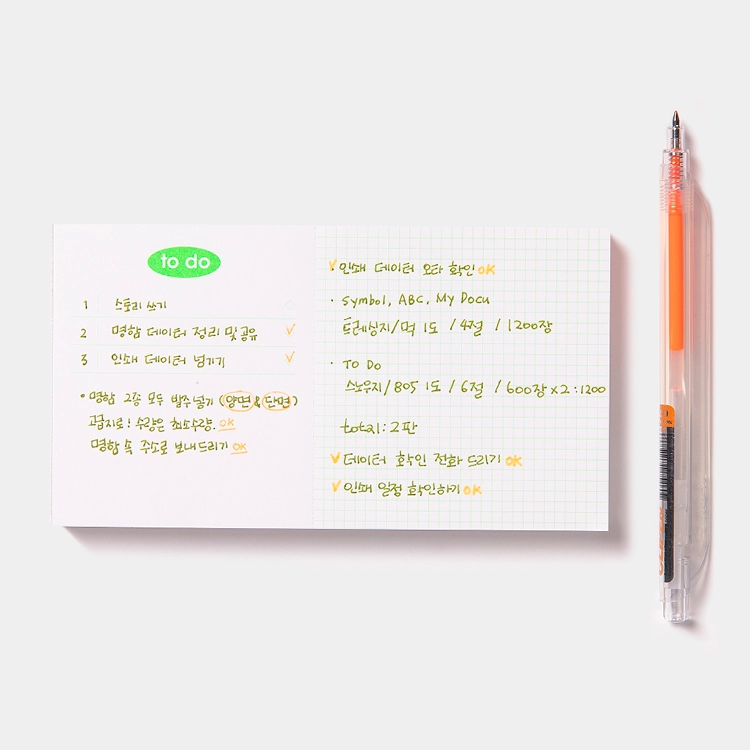 to do
1 스토리 쓰기
2 명함 데이터 정리 및 공유 ✓
3 인쇄 데이터 넘기기 ✓
• 명함 2종 모두 발주 넣기 (양면 & 단면)
고급지로! 수량은 최소수량. OK
명함 속 주소로 보내드리기 OK
✓ 인쇄 데이터 오타 확인 OK
· Symbol, ABC, My Docu
트레싱지/먹 1도 / 4절 / 1200장
· TO DO
스노우지/805 1도 / 6절 / 600장 x 2 : 1200
total: 2판
✓ 데이터 확인 전화 드리기 OK
✓ 인쇄 일정 확인하기 OK